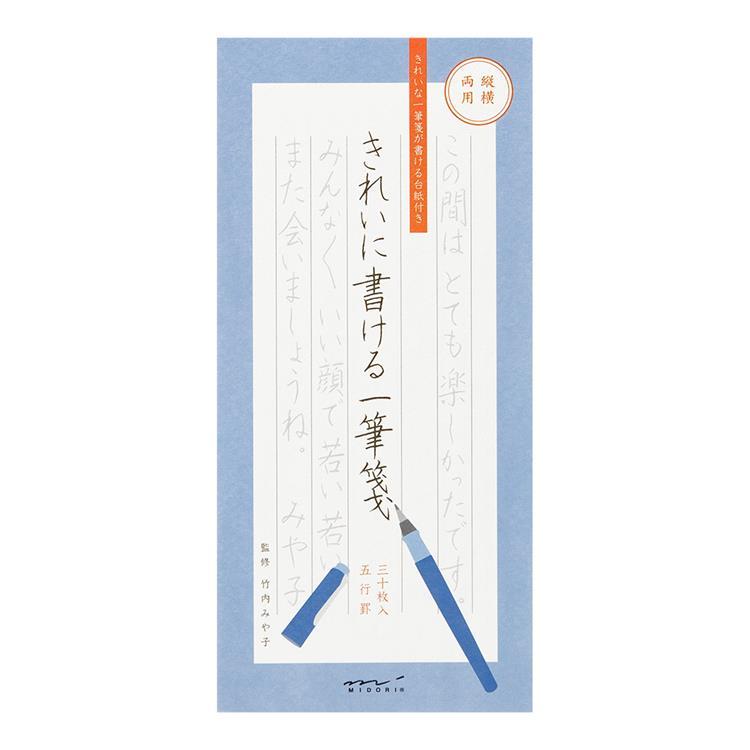 縦横
両用
きれいな一筆箋が書ける台紙付き
この間はとても楽しかったです。
きれいに書ける一筆箋
みんなくいい顔で若い若い
また会いましょうね。 みや子
三十枚入
五行罫
監修 竹内みや子
MIDORI®